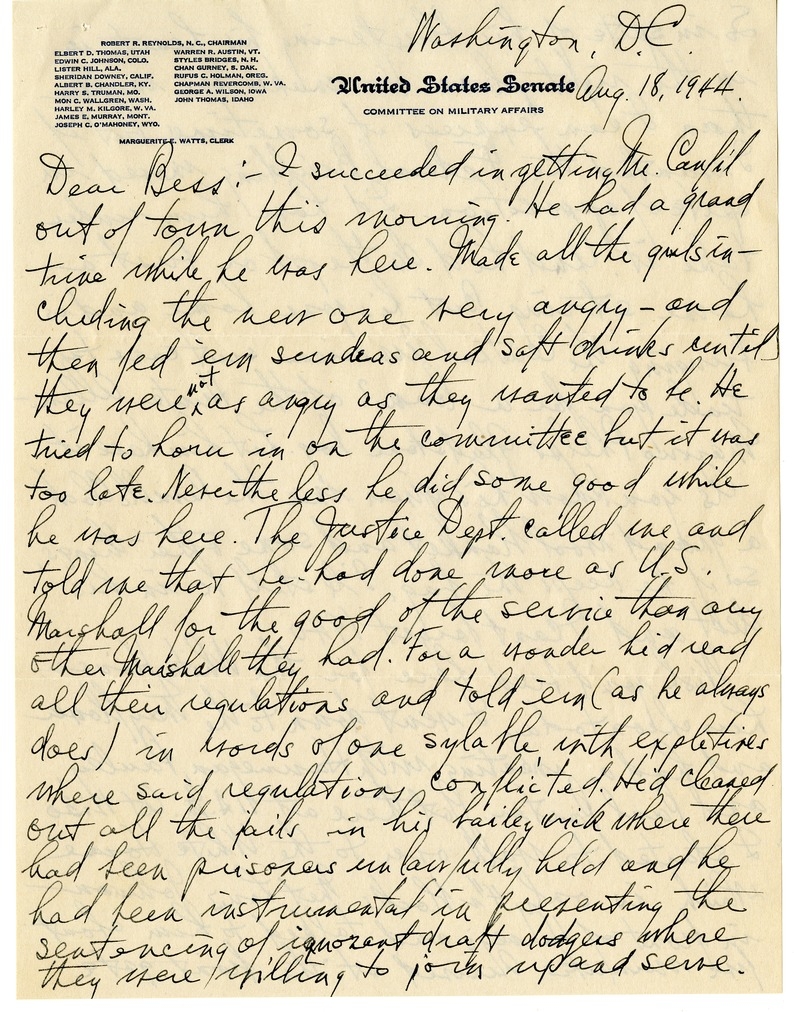 Washington, D.C.
ROBERT R. REYNOLDS, N. C., CHAIRMAN
ELBERT D. THOMAS, UTAH
EDWIN C. JOHNSON, COLO.
LISTER HILL, ALA.
SHERIDAN DOWNEY, CALIF.
ALBERT B. CHANDLER, KY.
HARRY S. TRUMAN, MO.
MON C. WALLGREN, WASH.
HARLEY M. KILGORE, W. VA.
JAMES E. MURRAY, MONT.
JOSEPH C. O'MAHONEY, WYO.
WARREN R. AUSTIN, VT.
STYLES BRIDGES, N. H.
CHAN GURNEY, S. DAK.
RUFUS C. HOLMAN, OREG.
CHAPMAN REVERCOMB, W. VA.
GEORGE A. WILSON, IOWA
JOHN THOMAS, IDAHO
MARGUERITE E. WATTS, CLERK
United States Senate
Aug. 18, 1944.
COMMITTEE ON MILITARY AFFAIRS
Dear Bess:- I succeeded in getting Mr. Canfil
out of town this morning. He had a grand
time while he was here. Made all the girls in-
cluding the new one very angry - and
then fed 'em sundeas and soft drinks until
they were not as angry as they wanted to be. He
tried to horn in on the committee but it was
too late. Nevertheless he did some good while
he was here. The Justice Dept. called me and
told me that he had done more as U.S.
Marshall for the good of the service than any
other Marshall they had. For a wonder he'd read
all their regulations and told 'em (as he always
does) in words of one sylable with expletives
where said regulations conflicted. He'd cleaned
out all the jails in his baileywick where there
had been prisoners unlawfully held and he
had been instrumental in preventing the
sentencing of ignorant draft dodgers where
they were willing to join up and serve.